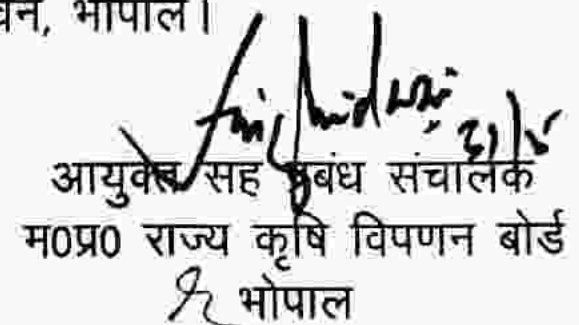 भोपाल।
आयुक्त सह प्रबंध संचालक
म0प्र0 राज्य कृषि विपणन बोर्ड
भोपाल